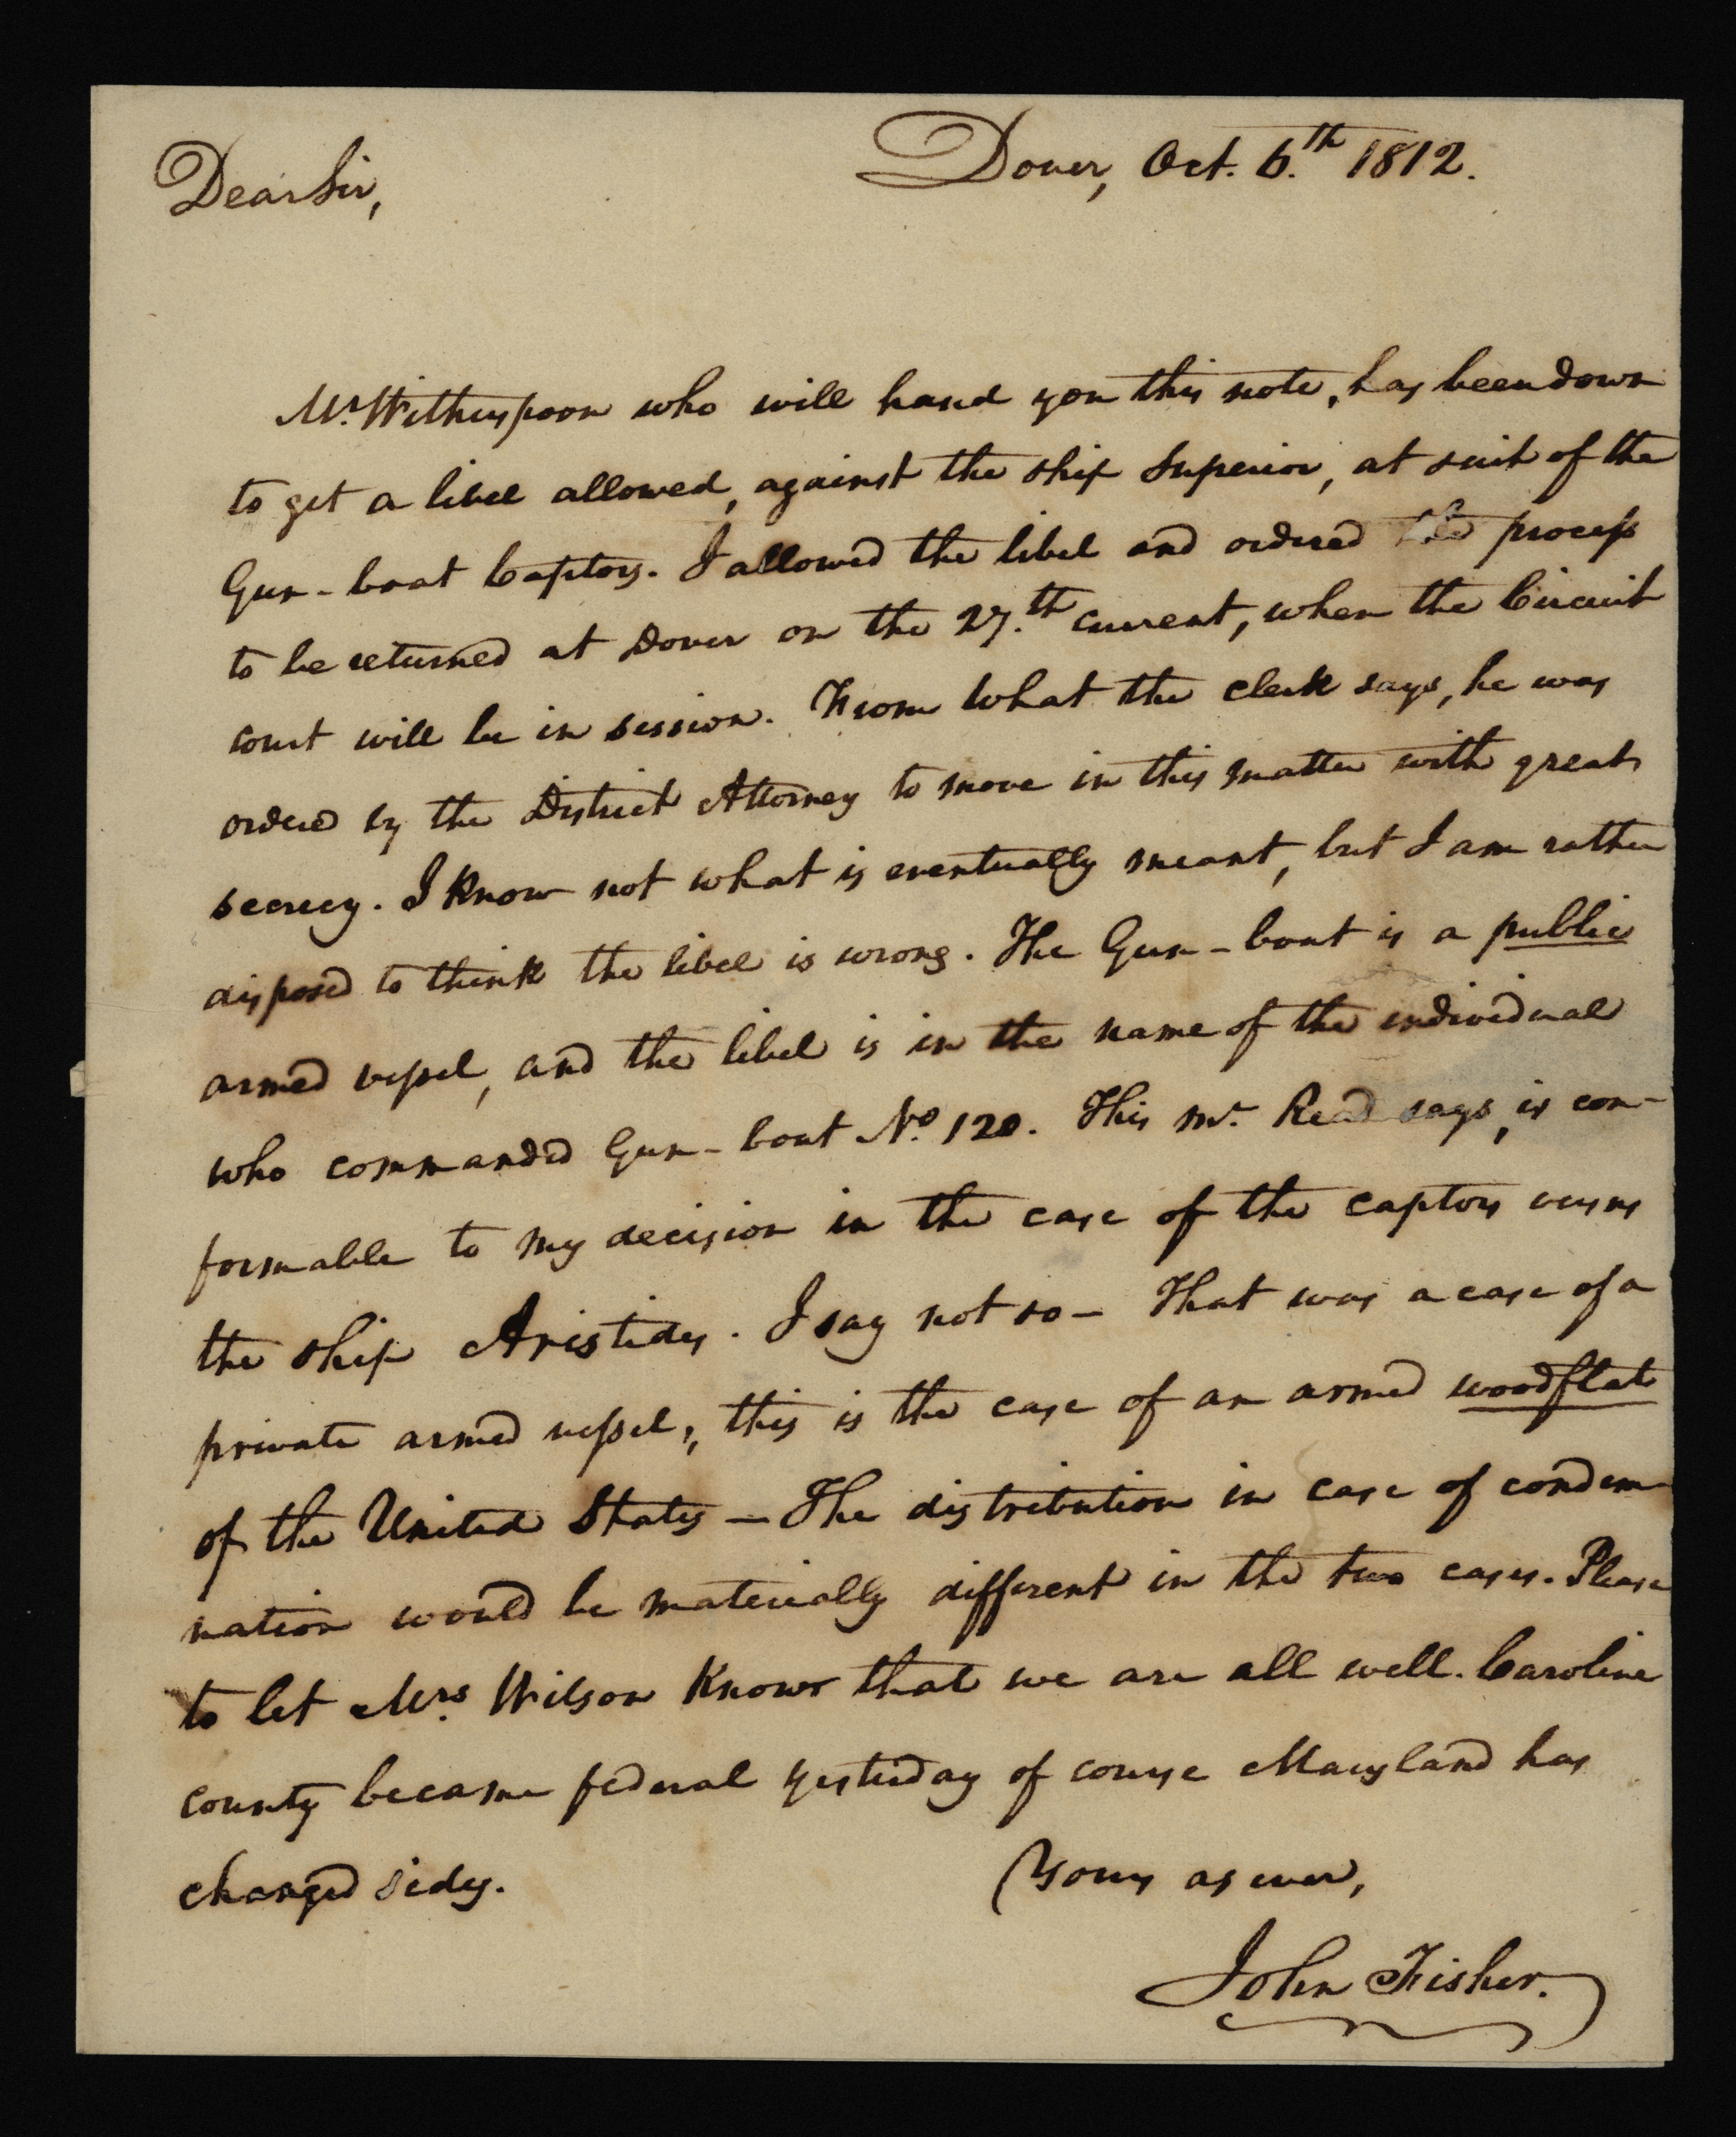 Dover, Oct. 6.th 1812.
Dear Sir,
Mr. Witherspoon who will hand you this note, has been down
to get a libel allowed, against the ship Superior, at suit of the
Gun-boat Captors. I allowed the libel and ordered the process
to be returned at Dover on the 27.th current, when the Circuit
court will be in session. From what the clerk says, he was
ordered by the District Attorney to move in this matter with great
secrecy. I know not what is eventually meant, but I am rather
disposed to think the libel is wrong. The Gun-boat is a public
armed vessel, and the libel is in the name of the individual
who commanded Gun-boat No. 120. This Mr. Read says, is con-
formable to my decision in the case of the captors versus
the ship Aristides. I say not so— That was a case of a
private armed vessel, this is the case of an armed woodflat
of the United States — The distribution in case of condem-
nation would be materially different in the two cases. Please
to let Mrs. Wilson know that we are all well. Caroline
county became federal yesterday of course Maryland has
changed sides.
Yours as ever,
John Fisher.